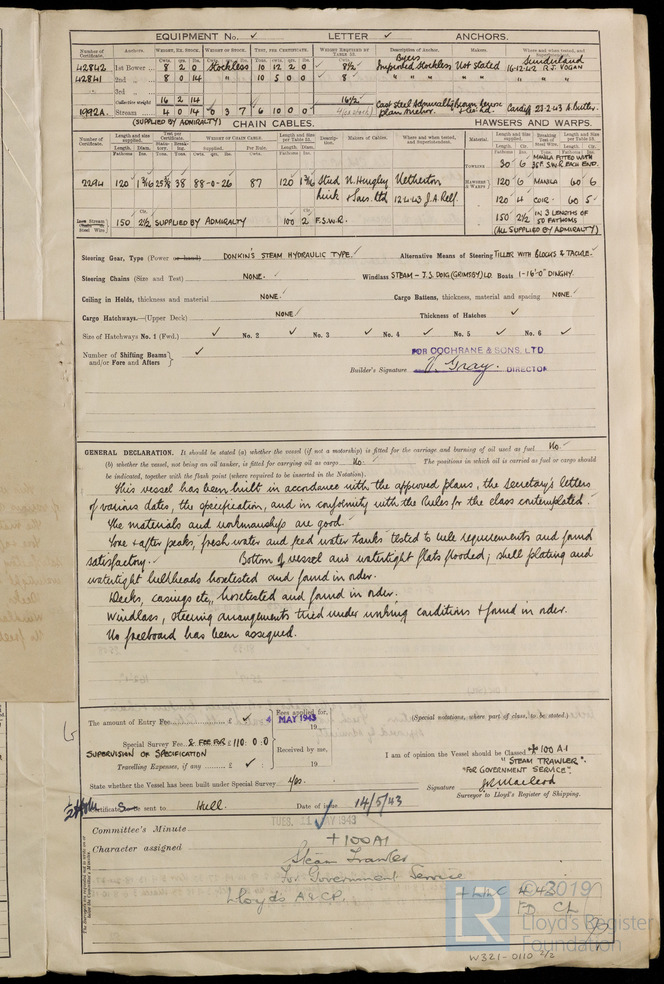 EQUIPMENT No. ✓ LETTER ✓ ANCHORS.
Number of Certificate. Anchors. WEIGHT, EX. STOCK. WEIGHT OF STOCK. TEST, PER CERTIFICATE. WEIGHT REQUIRED BY TABLE 22. Description of Anchor. Makers. Where and when tested, and Superintendent.
42842 1st Bower 8 2 0 Stockless 10 12 2 0 8½ Byers Improved Stockless Not stated Sunderland 16.12.42 R.J. VOGAN
42841 2nd " 8 0 14 " 10 5 0 0 8 " " " " " "
3rd "
Collective weight 16 2 14 16½
1992A. Stream 4 0 14 0 3 7 6 10 0 0 Cast steel Admiralty plan Anchor. Cardiff 23.2.43
(SUPPLIED BY ADMIRALTY) CHAIN CABLES. HAWSERS AND WARPS.
Number of Certificate. Length and size supplied. Test per Certificate. WEIGHT OF CHAIN CABLE. Length and size per Table 22. Description. Makers of Cables. Where and when tested, and Superintendent. Material. Length and size supplied. Breaking Test of Steel Wire. Length and size per Table 22.
TOWLINE 30 6 MANILA FITTED WITH S.W.R EACH END.
7294 120 1 3/16 38 88-0-26 87 120 1 3/16 Stud Link N. Hingley & Sons. Ltd Netherton 12.4.43 J.A. Relf. HAWSERS & WARPS 120 6 MANILA 60 6
120 4 COIR. 60 5
Stream Steel Wire 150 2½ SUPPLIED BY ADMIRALTY 100 2 F.S.W.R. 150 2½ IN 3 LENGTHS OF 50 FATHOMS
(ALL SUPPLIED BY ADMIRALTY)
Steering Gear, Type (Power or hand) DONKIN'S STEAM HYDRAULIC TYPE. Alternative Means of Steering TILLER WITH BLOCKS & TACKLE.
Steering Chains (Size and Test) NONE. Windlass STEAM - J.S. DOIG (GRIMSBY) LD. Boats 1-16'0" DINGHY.
Ceiling in Holds, thickness and material NONE. Cargo Battens, thickness, material and spacing NONE.
Cargo Hatchways.—(Upper Deck) NONE Thickness of Hatches ✓
Size of Hatchways No. 1 (Fwd.) ✓ No. 2 ✓ No. 3 ✓ No. 4 ✓ No. 5 ✓ No. 6 ✓
Number of Shifting Beams and/or Fore and Afters } ✓
FOR COCHRANE & SONS, LTD.
Builder's Signature W. Gray. DIRECTOR
GENERAL DECLARATION. It should be stated (a) whether the vessel (if not a motorship) is fitted for the carriage and burning of oil used as fuel No.
(b) whether the vessel, not being an oil tanker, is fitted for carrying oil as cargo No. The positions in which oil is carried as fuel or cargo should
be indicated, together with the flash point (where required to be inserted in the Notation).
This vessel has been built in accordance with the approved plans, the Secretary's letters
of various dates, the specification, and in conformity with the Rules for the class contemplated.
The materials and workmanship are good.
Fore & after peaks, fresh water and feed water tanks tested to rule requirements and found
satisfactory. Bottom of vessel and watertight flats flooded; shell plating and
watertight bulkheads hosetested and found in order.
Decks, casings etc, hosetested and found in order.
Windlass, steering arrangements tried under working conditions & found in order.
No freeboard has been assigned.
The amount of Entry Fee £ ✓ Fees applied for, 4 MAY 1943 (Special notations, where part of class, to be stated.)
Special Survey Fee & FEE FOR £110: 0: 0 Received by me,
SUPERVISION OF SPECIFICATION
Travelling Expenses, if any £ ✓ 19
I am of opinion the Vessel should be Classed ✠ 100 A1
"STEAM TRAWLER".
"FOR GOVERNMENT SERVICE".
State whether the Vessel has been built under Special Survey Yes. Signature
Surveyor to Lloyd's Register of Shipping.
Certificate to be sent to Hull. Date of issue 14/5/43
Committee's Minute TUES. 11 MAY 1943
Character assigned + 100A1
Steam Trawler
For Government Service
Lloyd's A&CP. + LMC 4.43
FD CL
LR Lloyd's Register Foundation
W321-0110 2/2